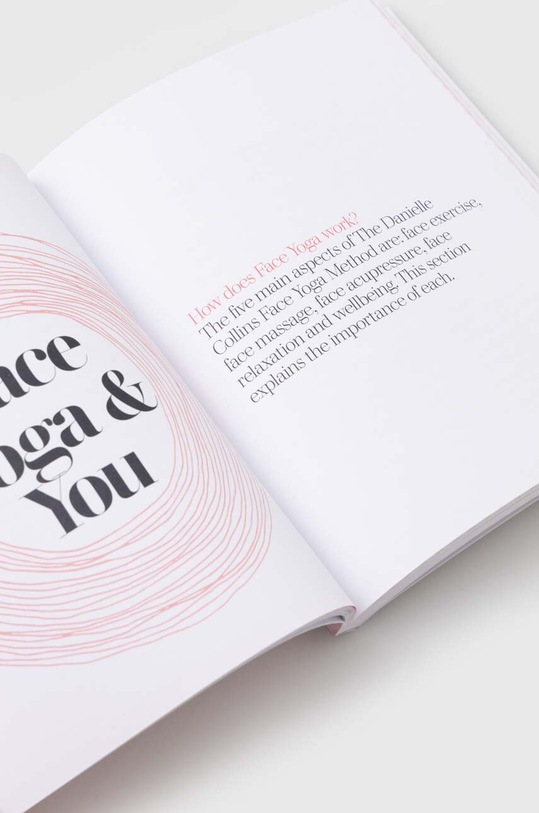 ace
oga &
You
How does Face Yoga work?
The five main aspects of The Danielle
Collins Face Yoga Method are: face exercise,
face massage, face acupressure, face
relaxation and wellbeing. This section
explains the importance of each.